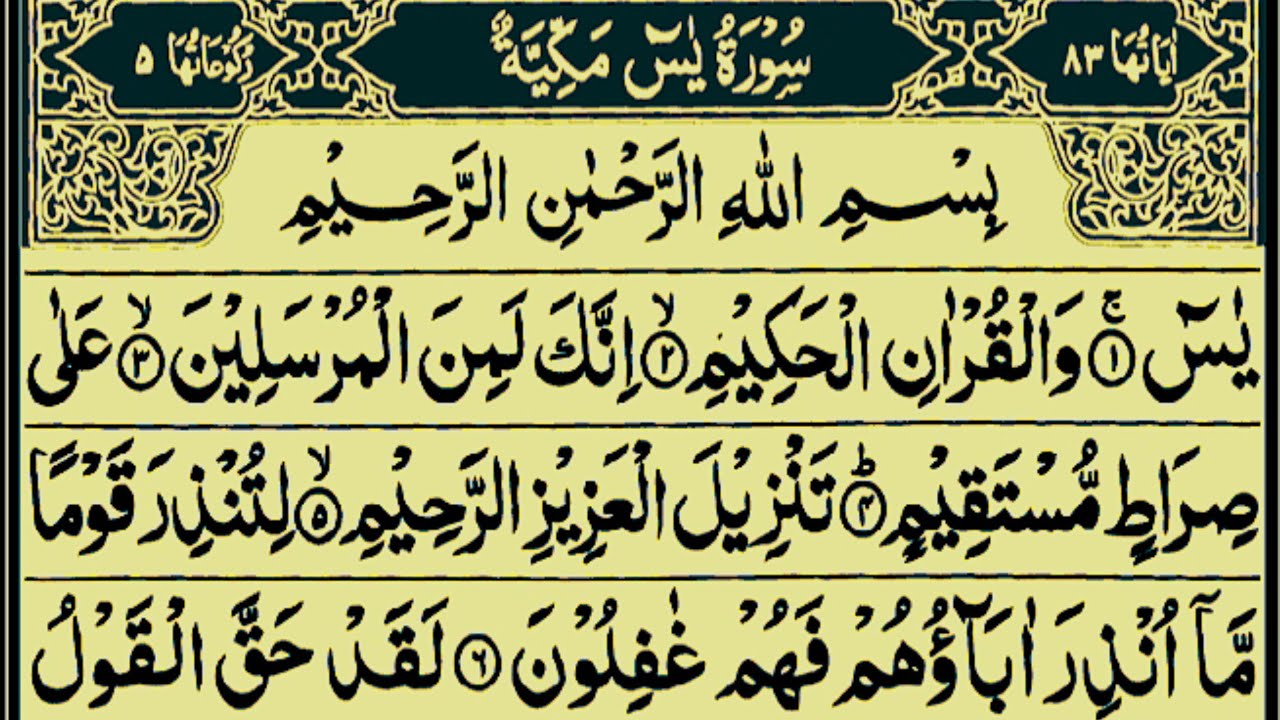 اٰیَاتُهَا ٨٣ سُوْرَةُ یٰسٓ مَكِّیَّةٌ رُكُوْعَاتُهَا ٥
بِسْمِ اللّٰهِ الرَّحْمٰنِ الرَّحِیْمِ
یٰسٓ ۚ﴿١﴾ وَالْقُرْاٰنِ الْحَكِیْمِ ۙ﴿٢﴾ اِنَّكَ لَمِنَ الْمُرْسَلِیْنَ ۙ﴿٣﴾ عَلٰی
صِرَاطٍ مُّسْتَقِیْمٍ ؕ﴿۴﴾ تَنْزِیْلَ الْعَزِیْزِ الرَّحِیْمِ ۙ﴿٥﴾ لِتُنْذِرَ قَوْمًا
مَّاۤ اُنْذِرَ اٰبَآؤُهُمْ فَهُمْ غٰفِلُوْنَ ﴿٦﴾ لَقَدْ حَقَّ الْقَوْلُ